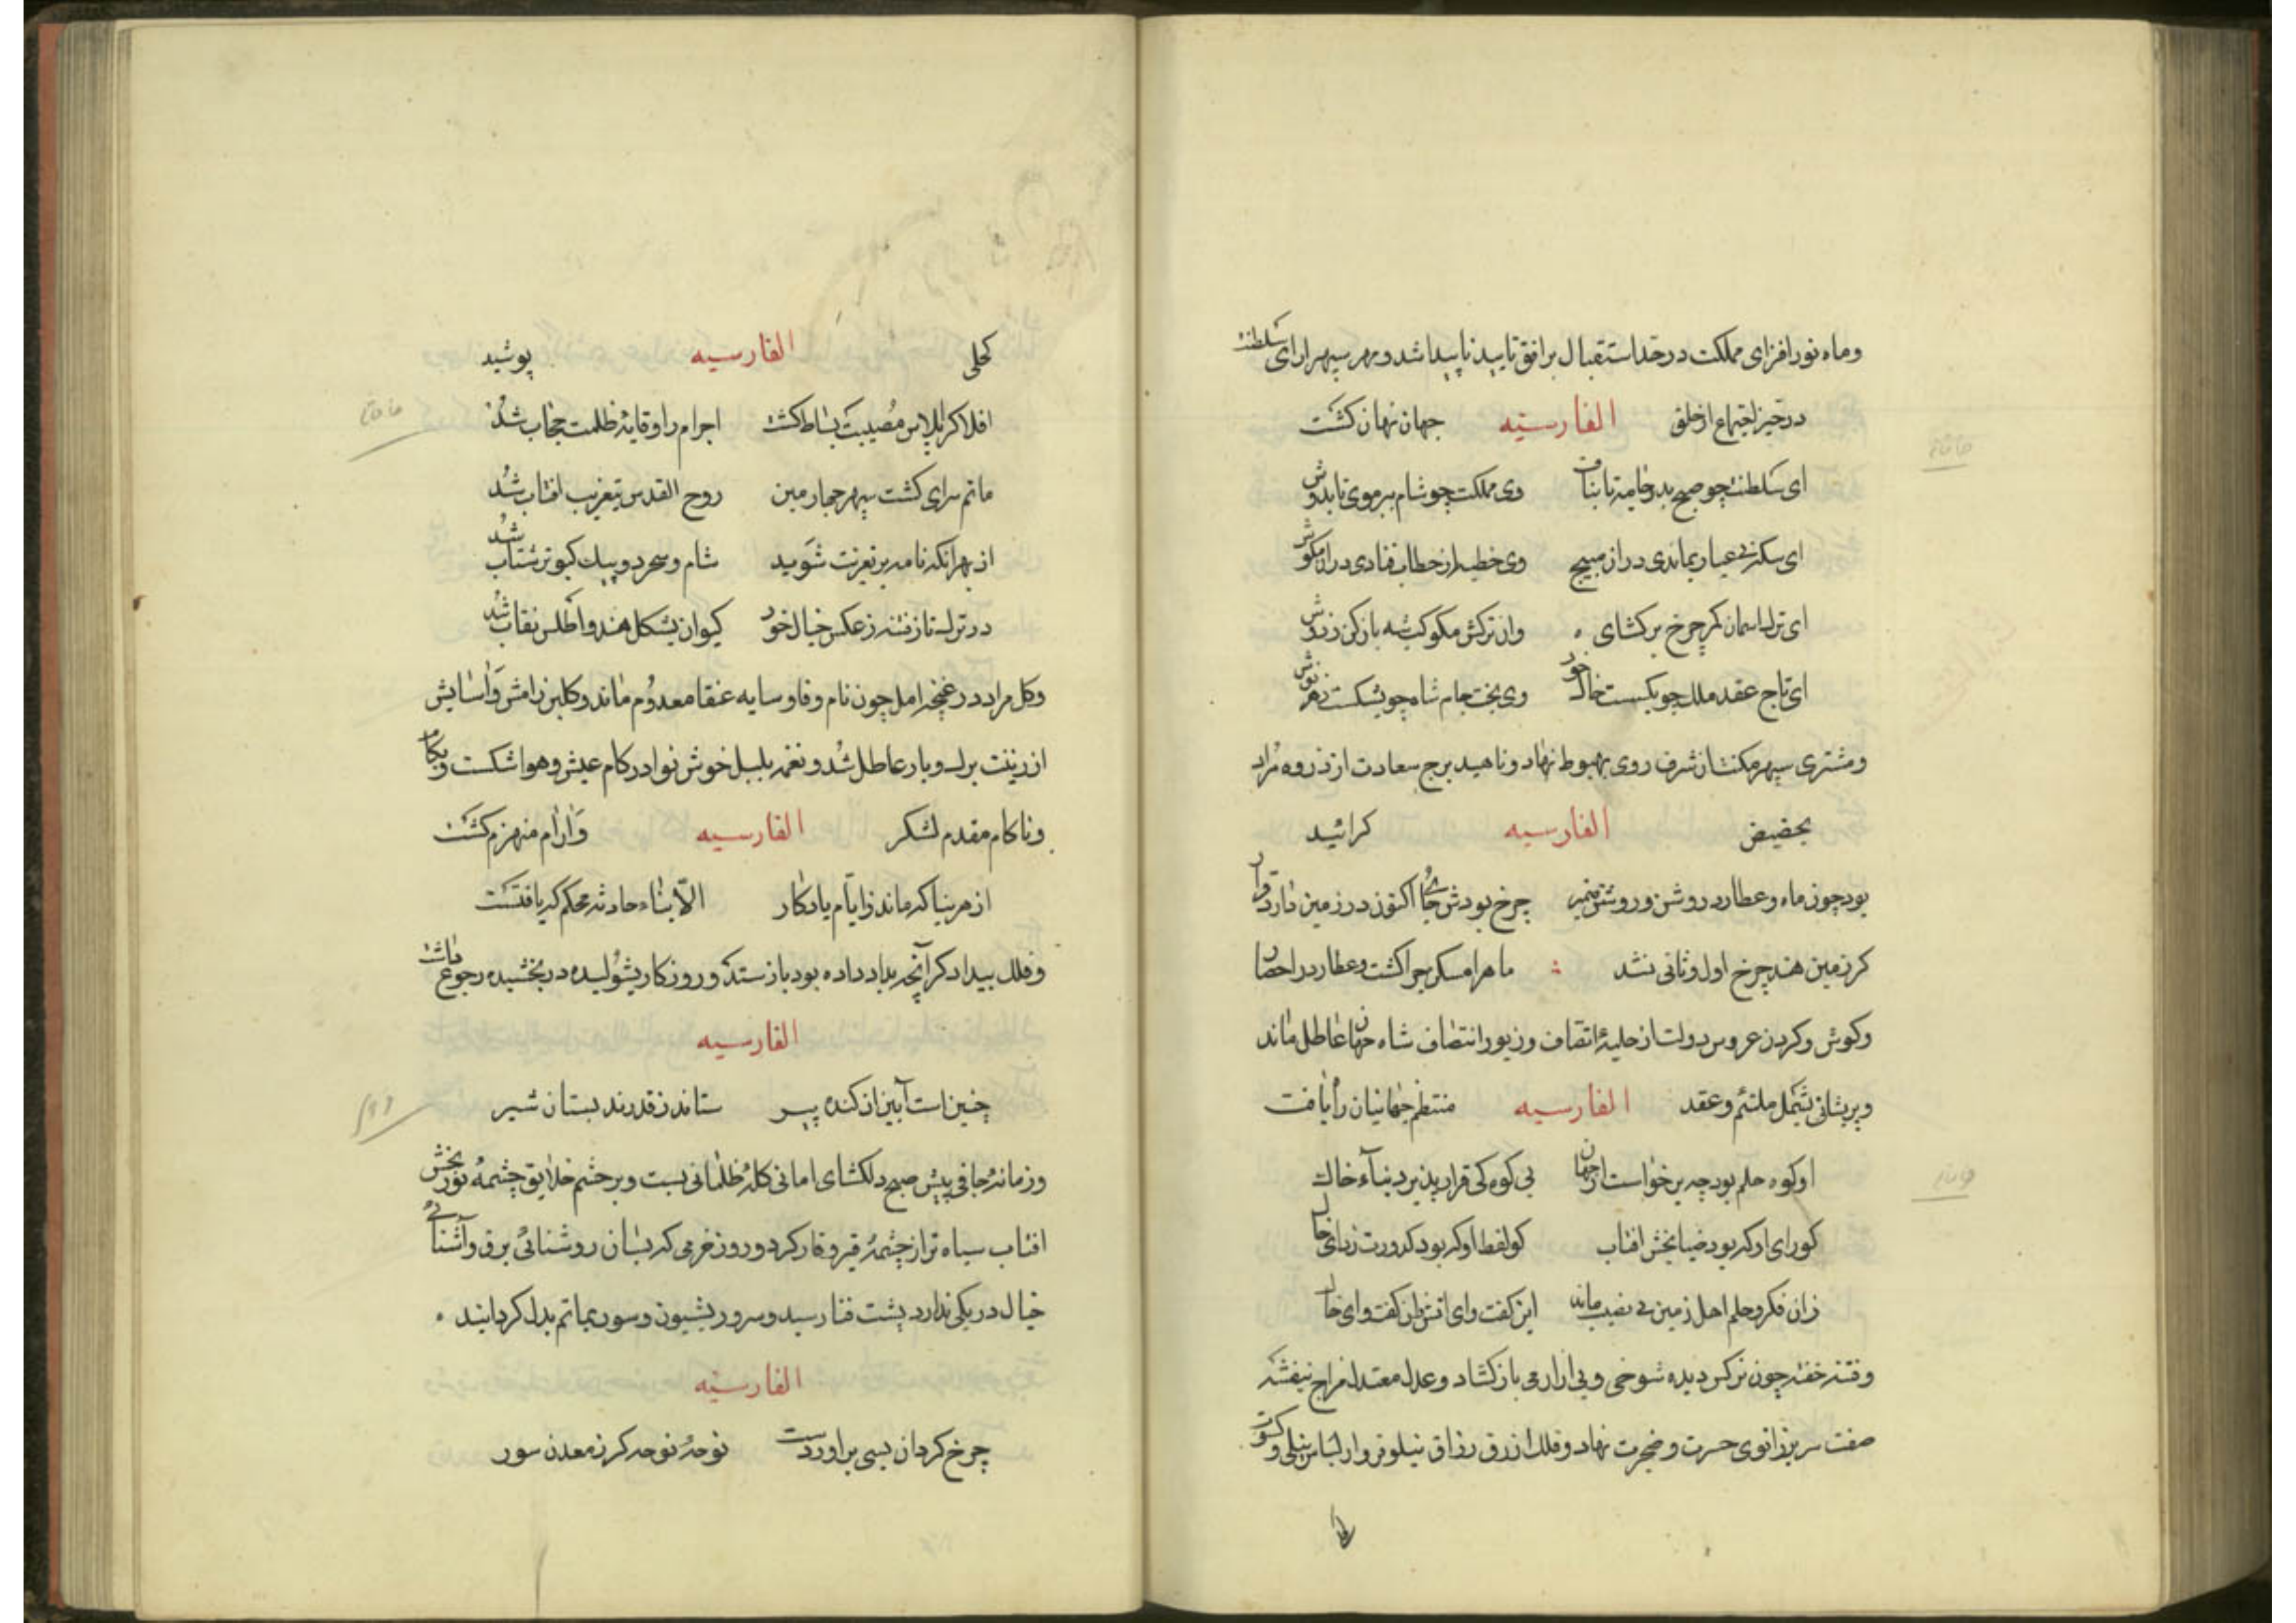 وماه نور افزای مملکت در حد استقبال بر افق تایید ناپیدا شد ومهر سپهر ارای سلطنت
در حیز اجتماع از خلق الفارسیه جهان نهان کشت
ای سلطنت چو صبح بدر جامه تا بناف وی مملکت چو شام ببر موی تا بدوش
ای سکه بی عیار بماندی در از مپیچ وی خطبه از خطاب فتادی در ا مکوش
ای ترک اسمان کمر چرخ بر کشای وان ترکش مکوکب شه باز کن ز دوش
ای تاج عقد ملک چو بکسست خاک خور وی بخت جام شاه چو بشکست زهر نوش
ومشتری سپهر مکنت از شرف روی بهبوط نهاد وناهید برج سعادت از ذروه مراد
بحضیض الفارسیه کرائید
بود چون ماه وعطارد روشن و روشن ضمیر چرخ بودش جای اکنون در زمین دارد قرار
کر زمین هند چرخ اول وثانی نشد ماه را مسکن چرا کشت وعطارد را حصار
وکوش وکردن عروس دولت از حلیهٔ اتصاف وزیور انتصاف شاه جهان عاطل ماند
وپریشانی بشمل ملتئم وعقد الفارسیه منتظم جهانیان راه یافت
او کوه حلم بود چه برخواست از جهان بی کوه کی قرار پذیرد بناء خاک
کو رای او که بود ضیا بخش افتاب کو لفظ او که بود کدورت زدای خاک
زان فکر وحلم اهل زمین بی نصیب ماند این کفت وای اتش وان کفت وای خاک
وفتنه خفته چون نرکس دیده شوخی وبی ازارمی باز کشاد وعدل معتدل مزاج بنفشه
صفت سر بر زانوی حسرت وضجرت نهاد وفلک ازرق رزاق نیلوفر وار لباس نیلی وکسوت
کحلی الفارسیه پوشید
افلاک را پلاس مصیبت بساط کشت اجرام را وقایهٔ ظلمت حجاب شد
ماتم سرای کشت سپهر چهارمین روح القدس بتعزیت افتاب شد
از بهر انکه نامه بر تعزیت شوید شام وسحر دو پیک کبوتر شتاب شد
در ترکتاز فتنه ز عکس خیال خود کیوان بشکل هندو اطلس نقاب شد
وکل مراد در غنچه امل چون نام وفا وسایه عنقا معدوم ماند وکلبن رامش واسایش
از زینت برک وبار عاطل شد ونغمه بلبل خوش نوا در کام عیش وهوا شکست وبکام
وناکام مقدم لشکر الفارسیه وارام منهزم کشت
از هر بنا که ماند ز ایام یادکار الا بناء حادثه محکم که یافتست
وفلک بیدادکر آنچه بداد داده بود باز ستد وروزکار بشولیده در بخشیده رجوع داشت
الفارسیه
چنین است آیین ان کنده پیر ستاند ز فرزند بستان شیر
وزمانهٔ جافی پیش صبح دلکشای امانی کلهٔ ظلمانی بست وبر چشم خلایق چشمهٔ نور بخش
افتاب سیاه تر از چشمهٔ قیر وقار کرد وروز خرمی که بسان روشنائی برق وآشنائی
خیال دیر یکی ندارد بشب فنا رسید وسرور بشیون وسور بماتم بدل کردانید
الفارسیه
چرخ کردان بسی بر اوردست نوحهٔ نوحه کر ز معدن سور